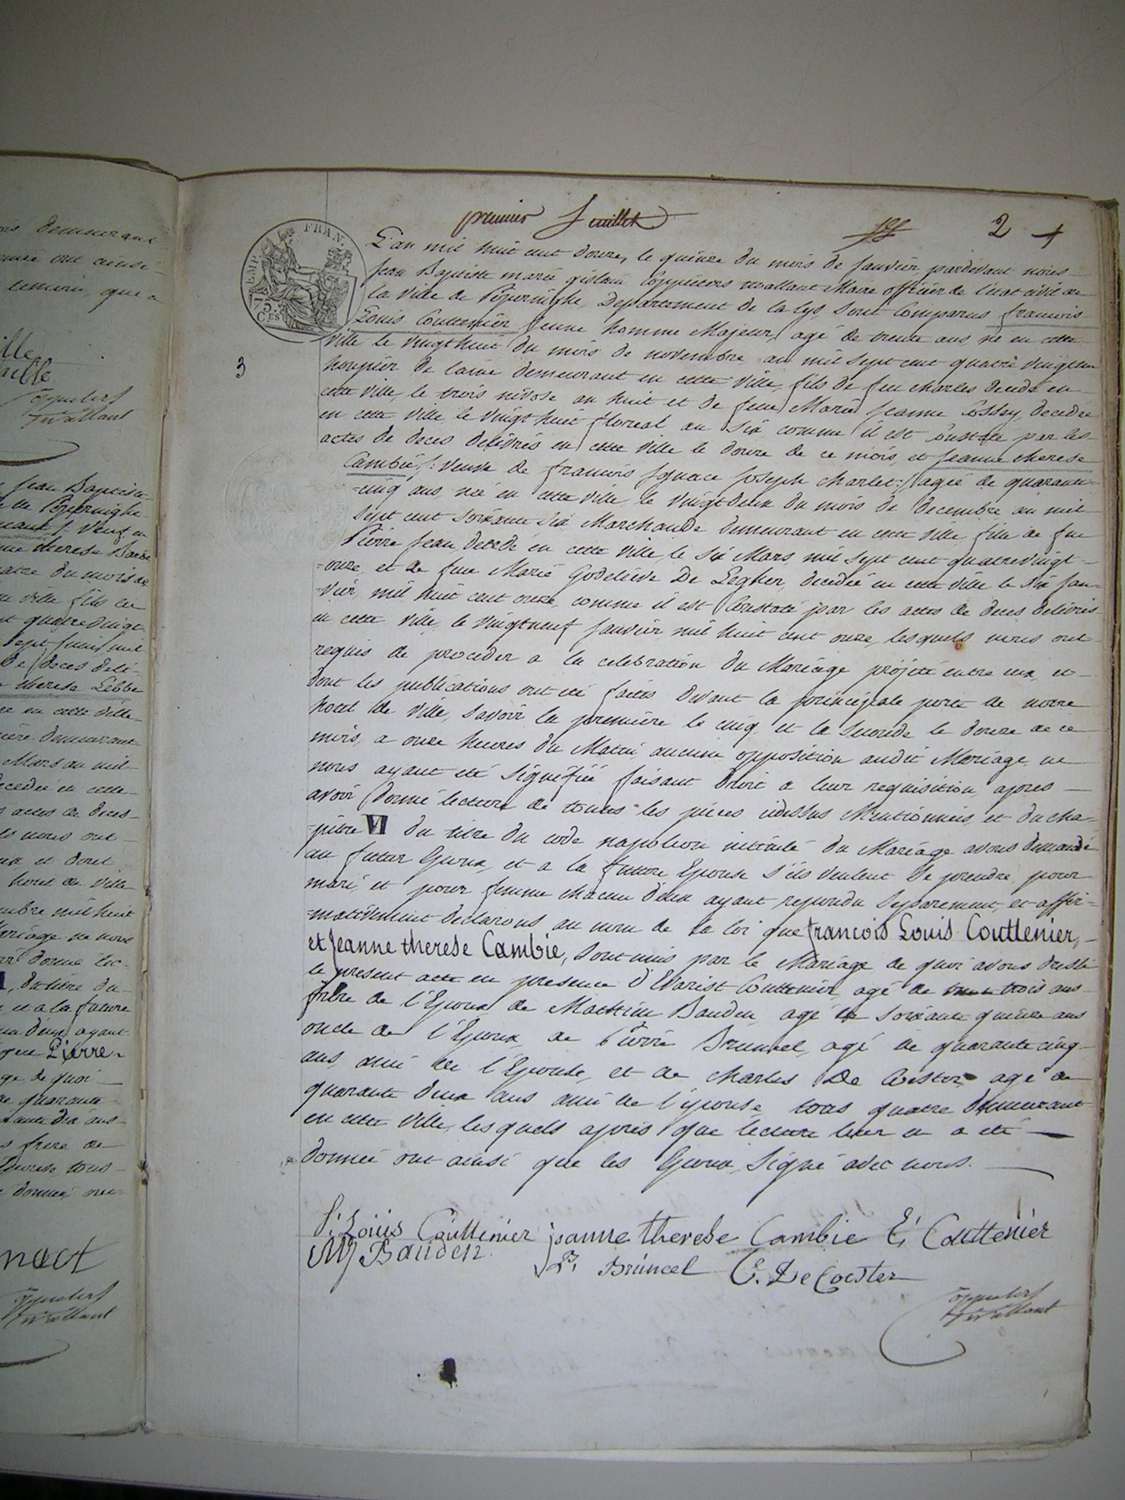 premier feuillet
2
TIMP. FRAN.
3
L'an mil huit cent douze, le quinze du mois de Janvier pardevant nous
Jean Baptiste marie gislain Coppieters wallant Maire officier de l'état civil de
la Ville de Poperinghe, Departement de la Lys sont Comparus francois
Louis Couttenier jeune homme Majeur, agé de trente ans né en cette
Ville le Vingthuit du mois de novembre an mil sept cent quatre vingt un
houpier de laine demeurant en cette ville, fils de feu charles decedé en
cette ville, le trois nivose an huit et de feue Marie Jeanne Lossey decedée
en cette ville le Vingt huit floreal an Six comme il est Constaté par les
actes de deces delivrés en cette ville le douze de ce mois, et Jeanne therese
Cambie, Veuve de francois Ignace Joseph Charlet; agée de quarante
-cinq ans née en cette ville le Vingt deux du mois de Decembre an mil
sept cent soixante Six Marchande demeurant en cette ville fille de feu
Pierre Jean decedé en cette ville le Six Mars mil sept cent quatrevingt-
-onze, et de feue Marie Godelieve De Legher, decédée en cette ville le Six Jan-
-vier mil huit cent onze, comme il est Constaté par les actes de deces delivrés
en cette ville, le vingtneuf Janvier mil huit cent onze, lesquels nous ont
requis de proceder a la celebration du Mariage projété entre eux, et
dont les publications ont été faites devant la principale porte de notre
hotel de ville, Savoir la premiere le cinq et la Seconde le douze de ce
mois, a onze heures du Matin aucune opposition audit Mariage ne
nous ayant été signifiée faisant droit a leur requisition, apres
avoir donné lecture de toutes les pieces cidessus Mentionnées, et du cha-
-pitre VI du titre du code napoleon intitulé du Mariage avons demandé
au futur Epoux, et a la future Epouse s'ils veulent se prendre pour
mari, et pour femme chacun d'eux ayant repondu Separement, et affir-
-mativement declarons au nom de la loi que francois Louis Couttenier,
et Jeanne therese Cambie, Sont unis par le Mariage de quoi avons dressé
le present acte en presence d'Evarist Couttenier, agé de trois ans
frere de l'Epoux de Bauden, agé de soixante quinze ans
oncle de l'Epoux, de Pierre Bruneel, agé de quarante cinq
ans, ami de l'Epouse, et de charles De Coester agé de
quarante deux ans ami de l'épouse, tous quatre demeurant
en cette Ville, lesquels après que lecture leur en a été
donnée ont ainsi que les Epoux, Signé avec nous.
f: Loüis Coüttenier jeanne therese Cambie E: Couttenier
Bauden P: Brüneel C. De Coester